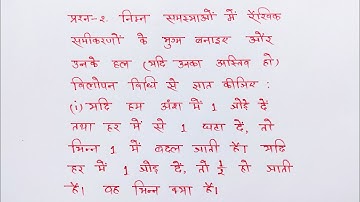 प्रश्न-२. निम्न समस्याओं में रैखिक
समीकरणों के युग्म बनाइए और
उनके हल (यदि उनका अस्तित्व हो)
विलोपन विधि से ज्ञात कीजिए :
(i) यदि हम अंश में 1 जोड़ दें
तथा हर में से 1 घटा दें, तो
भिन्न 1 में बदल जाती है। यदि
हर में 1 जोड़ दें, तो 1/2 हो जाती
है। वह भिन्न क्या है।